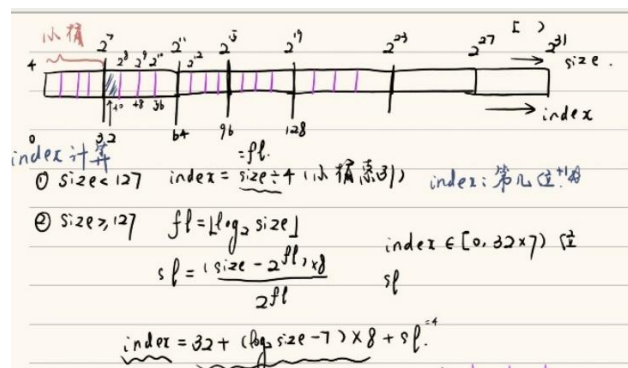 小桶 2⁷ 2⁸ 2⁹ 2¹⁰ 2¹¹ 2¹² 2¹⁵ 2¹⁹ 2²³ 2²⁷ [ ) 2³¹
4 size.
+8 index
0 32 64 96 128
index 计算 =fl.
① size<127 index = size÷4 (小桶索引) index: 第几位
② size≥127 fl=⌊log₂ size⌋
index ∈ [0, 32×7) 位
sl = (size - 2^fl)×8 / 2^fl sl
index = 32 + (log₂ size-7)×8 + sl.